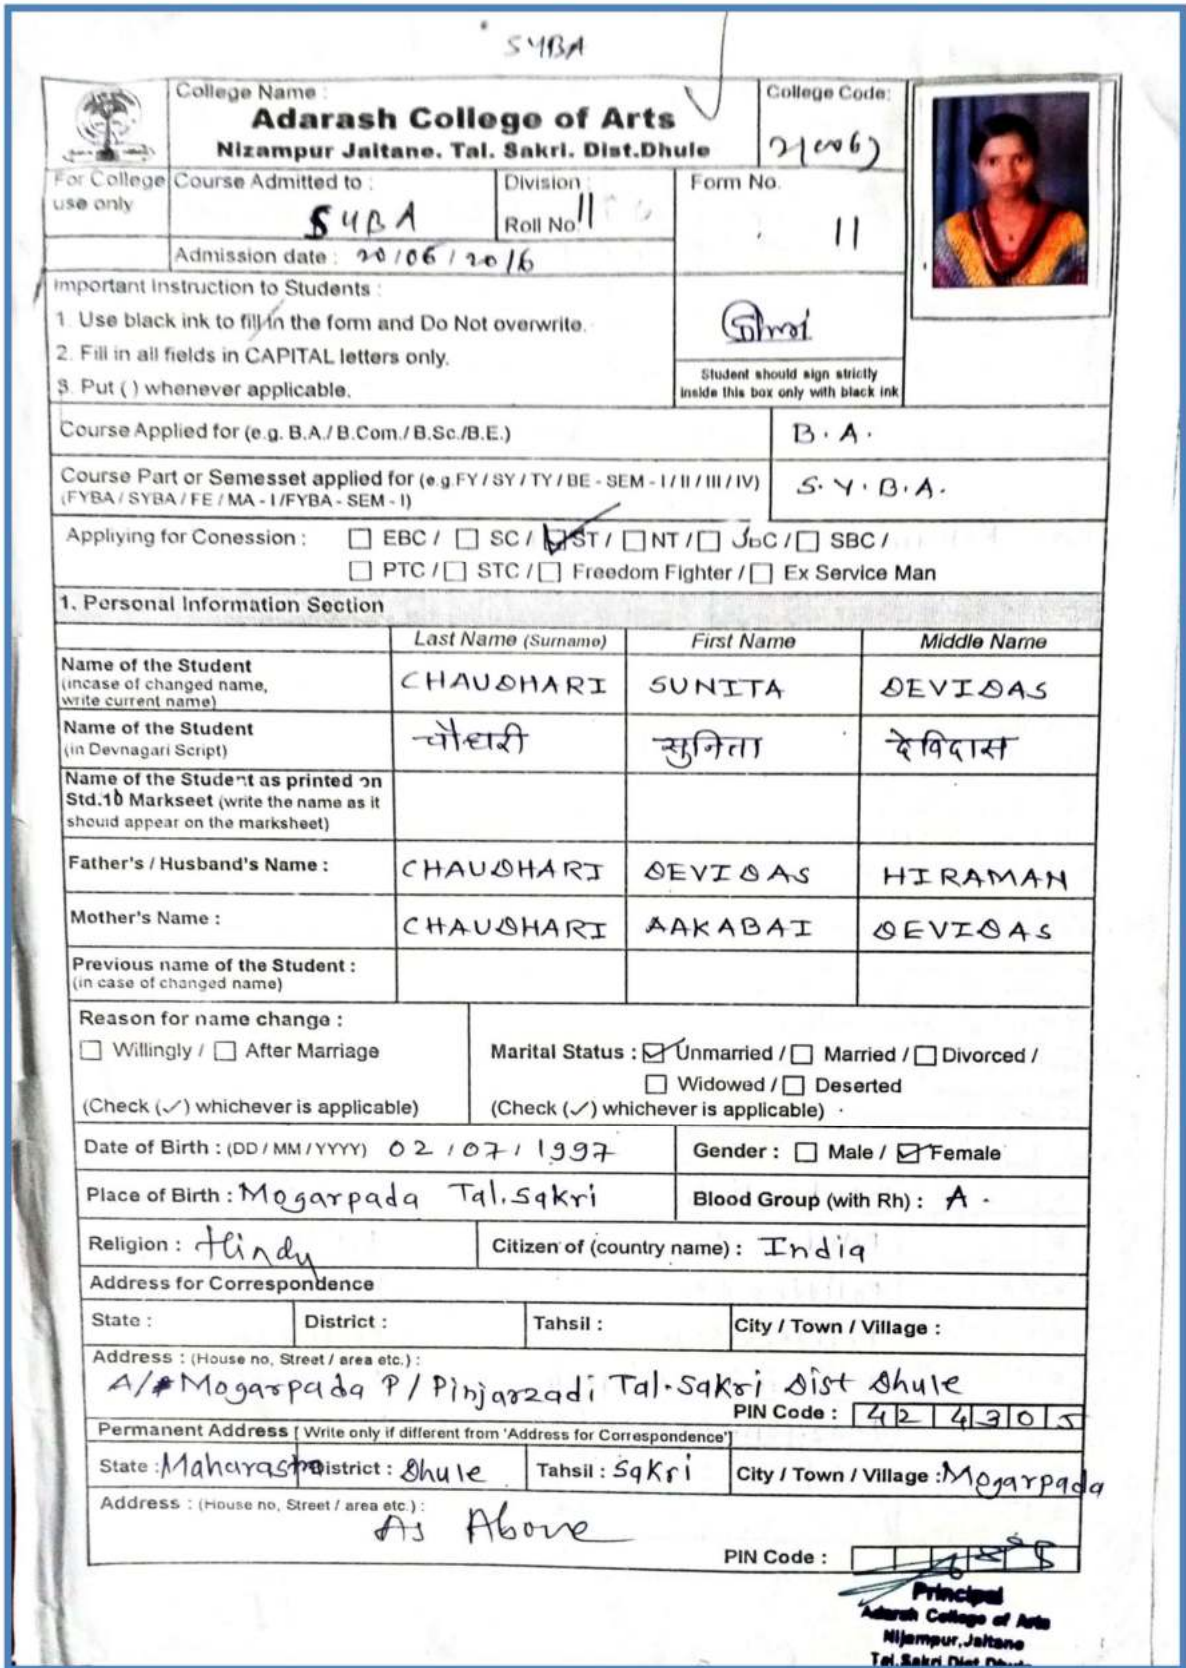 SYBA
College Name :
Adarash College of Arts
Nizampur Jaitane. Tal. Sakri. Dist.Dhule
College Code:
For College use only
Course Admitted to :
SYBA
Division :
Roll No. 11
Form No.
11
Admission date : 20/06/2016
Important Instruction to Students :
1. Use black ink to fill in the form and Do Not overwrite.
2. Fill in all fields in CAPITAL letters only.
3. Put ( ) whenever applicable.
Student should sign strictly
inside this box only with black ink
Course Applied for (e.g. B.A./ B.Com./ B.Sc./B.E.) B.A.
Course Part or Semesset applied for (e.g.FY / SY / TY / BE - SEM - I / II / III / IV) S.Y.B.A.
(FYBA / SYBA / FE / MA - I /FYBA - SEM - I)
Appliying for Conession : ☐ EBC / ☐ SC / ☑ ST / ☐ NT / ☐ / ☐ SBC /
☐ PTC / ☐ STC / ☐ Freedom Fighter / ☐ Ex Service Man
1. Personal Information Section
Last Name (Surname) First Name Middle Name
Name of the Student CHAUDHARI SUNITA DEVIDAS
(incase of changed name,
write current name)
Name of the Student चौधरी सुनिता देविदास
(in Devnagari Script)
Name of the Student as printed on
Std.10 Markseet (write the name as it
should appear on the marksheet)
Father's / Husband's Name : CHAUDHARI DEVIDAS HIRAMAN
Mother's Name : CHAUDHARI AAKABAI DEVIDAS
Previous name of the Student :
(in case of changed name)
Reason for name change :
☐ Willingly / ☐ After Marriage
(Check (✓) whichever is applicable)
Marital Status : ☑ Unmarried / ☐ Married / ☐ Divorced /
☐ Widowed / ☐ Deserted
(Check (✓) whichever is applicable)
Date of Birth : (DD / MM / YYYY) 02/07/1997 Gender : ☐ Male / ☑ Female
Place of Birth : Mogarpada Tal.Sakri Blood Group (with Rh) : A
Religion : Hindu Citizen of (country name) : India
Address for Correspondence
State : District : Tahsil : City / Town / Village :
Address : (House no, Street / area etc.) :
A/ Mogarpada P/ Pinjarzadi Tal.Sakri Dist Dhule
PIN Code : 424305
Permanent Address [ Write only if different from 'Address for Correspondence']
State : Maharastra District : Dhule Tahsil : Sakri City / Town / Village : Mogarpada
Address : (House no, Street / area etc.) :
As Above
PIN Code :
Principal
Adarsh College of Arts
Nijampur,Jaitane
Tal.Sakri Dist Dhule